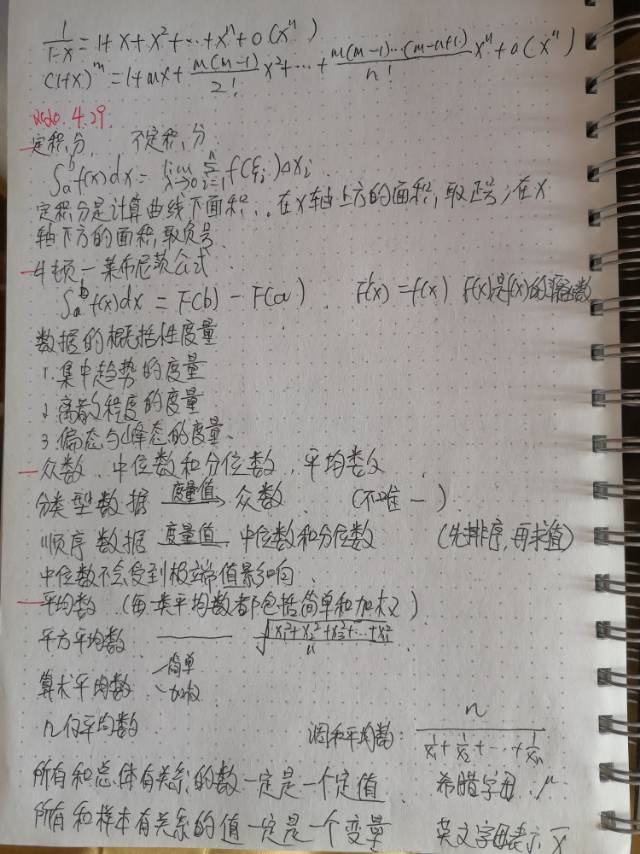 1/(1-x) = 1+x+x²+…+xⁿ+o(xⁿ)
(1+x)^m = 1+mx+ m(m-1)/2! x²+…+ m(m-1)…(m-n+1)/n! xⁿ+o(xⁿ)
4.29
定积分 不定积分
∫ₐᵇf(x)dx = lim_{λ→0} Σ_{i=1}^{n} f(ξᵢ)Δxᵢ
定积分是计算曲线下面积,在x轴上方的面积,取正号;在x
轴下方的面积,取负号
牛顿-莱布尼茨公式
∫ₐᵇf(x)dx = F(b) - F(a) F'(x)=f(x) F(x)是f(x)的函数
数据的概括性度量
1.集中趋势的度量
2.离散程度的度量
3.偏态与峰态的度量
众数、中位数和分位数、平均数
分类型数据 度量值→ 众数 (不唯一)
顺序数据 度量值→ 中位数和分位数 (先排序,再求值)
中位数不会受到极端值影响
平均数 (每一类平均数都包括简单和加权)
平方平均数 —— √((x₁²+x₂²+x₃²+…+xₙ²)/n)
算术平均数 简单
加权
几何平均数 调和平均数: n/(1/x₁+1/x₂+…+1/xₙ)
所有和总体有关系的数一定是一个定值 希腊字母 μ
所有和样本有关系的值一定是一个变量 英文字母表示 x̄